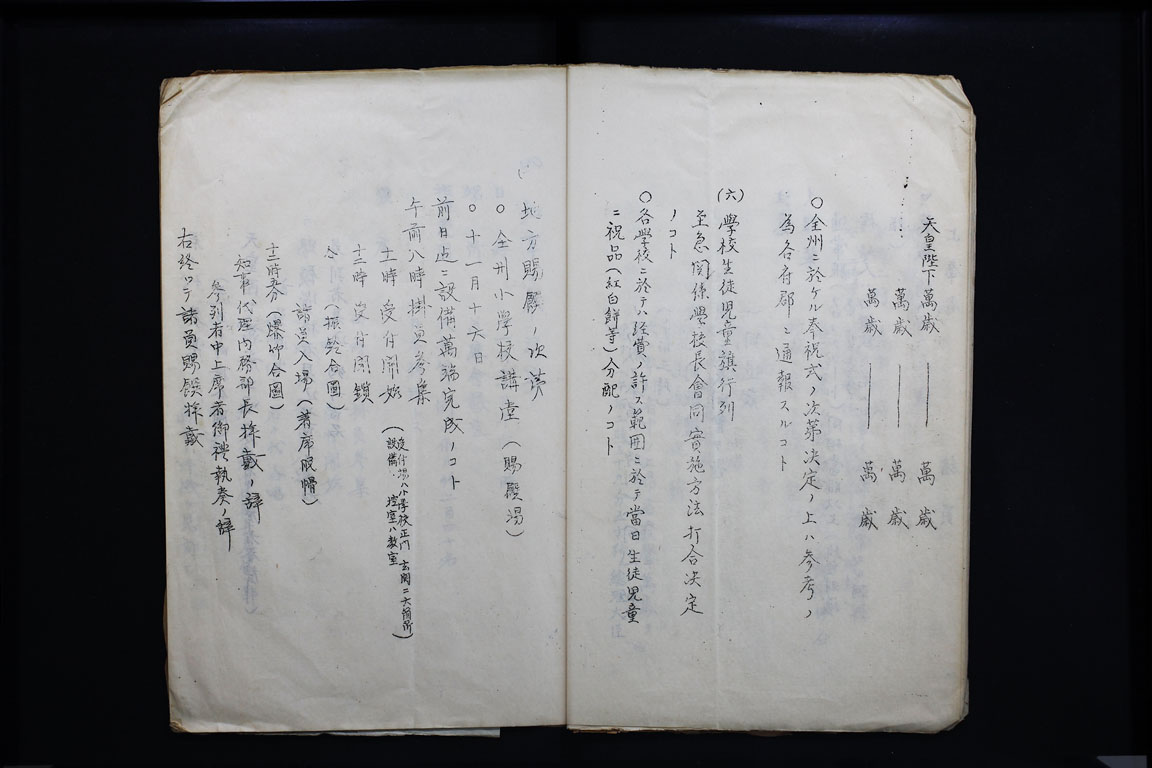 天皇陛下萬歳 ―― 萬歳
萬歳 ―― 萬歳
萬歳 ―― 萬歳
〇全州ニ於ケル奉祝式ノ次第決定ノ上ハ参考ノ
為各府郡ニ通報スルコト
(六)學校生徒児童旗行列
至急関係學校長會同實施方法打合決定
ノコト
〇各學校ニ於テハ経費ノ許ス範囲ニ於テ當日生徒児童
ニ祝品(紅白餅等)分配ノコト
地方賜饌ノ次第
〇全州小学校講堂(賜饌場)
〇十一月十六日
前日迄ニ設備萬端完成ノコト
午前八時掛員参集
(受付場ハ小学校正門玄関ニ六箇所
設備 控室ハ教室)
十一時受付開始
十二時受付閉鎖
(振鈴合圖)
諸員入場(著席脱帽)
(爆竹合圖)
知事代理内務部長捧戴ノ辞
参列者中上席者御禮執奏ノ辞
右終ッテ諸員賜饌捧戴